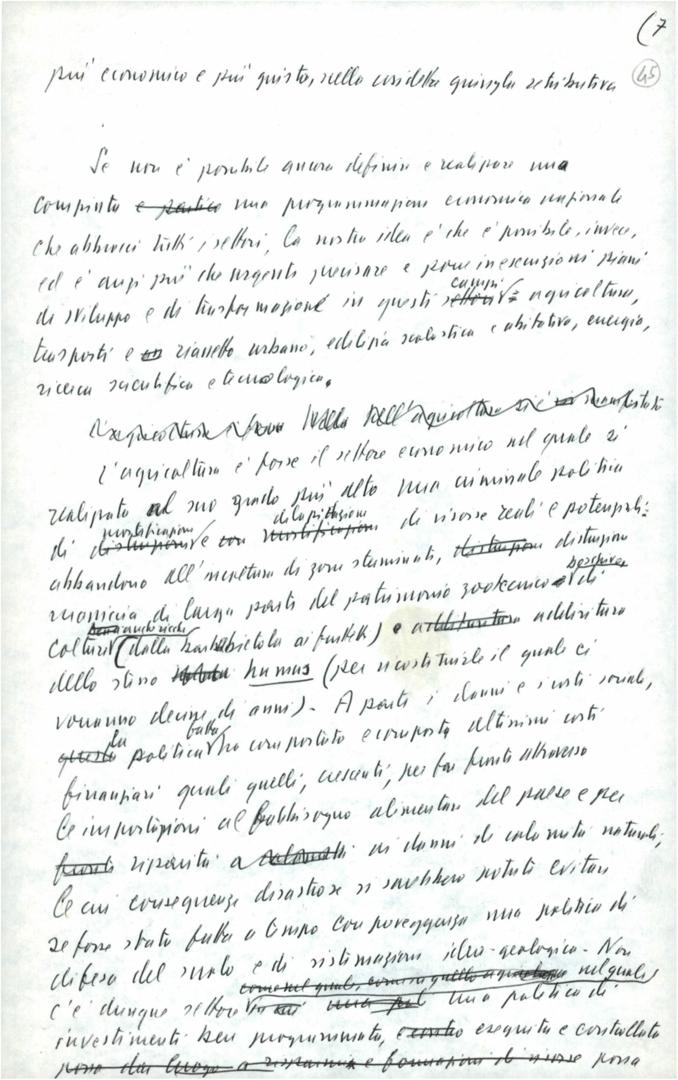 (7
45
più economico e più giusto, nella cosidetta giungla retributiva
Se non è possibile ancora definire e realizzare una
compiuta e una programmazione economica nazionale
che abbracci tutti i settori, la nostra idea è che è possibile, invece,
ed è anzi più che urgente precisare e porre in esecuzioni piani
campi
di sviluppo e di trasformazione in questi settori: agricoltura,
trasporti e riassetto urbano, edilizia scolastica e abitativa, energia,
ricerca scientifica e tecnologica.
L'agricoltura è forse nell'agricoltura si è manifestata
L'agricoltura è forse il settore economico nel quale si
realizzata al suo grado più alto una criminale politica
mortificazione dilapidazione
di distruzione e con mortificazione di risorse reali e potenziali:
abbandono all'incoltura di zone sterminate, distruzione distruzione
boschive,
massiccia di larga parte del patrimonio zootecnico e di
anche ricche
colture (dalla barbabietola ai frutteti) e addirittura addirittura
dello stesso humus (per ricostituirle il quale ci
vorranno decine di anni). A parte i danni e i costi sociali,
la fatta
questa politica ha comportato e comporta altissimi costi
finanziari quali quelli, crescenti, per far fronte attraverso
le importazioni al fabbisogno alimentare del paese e per
fronte riparità a ai danni di calamità naturali,
le cui conseguenze disastrose si sarebbero potute evitare
se fosse stata fatta a tempo con preveggenza una politica di
difesa del suolo e di sistemazione idro-geologica. Non
come nel quale, come in quello nel quale
c'è dunque settore in cui una pol una politica di
investimenti ben programmata, eseguita e controllata
possa dar luogo a risparmi e formazioni di risorse possa